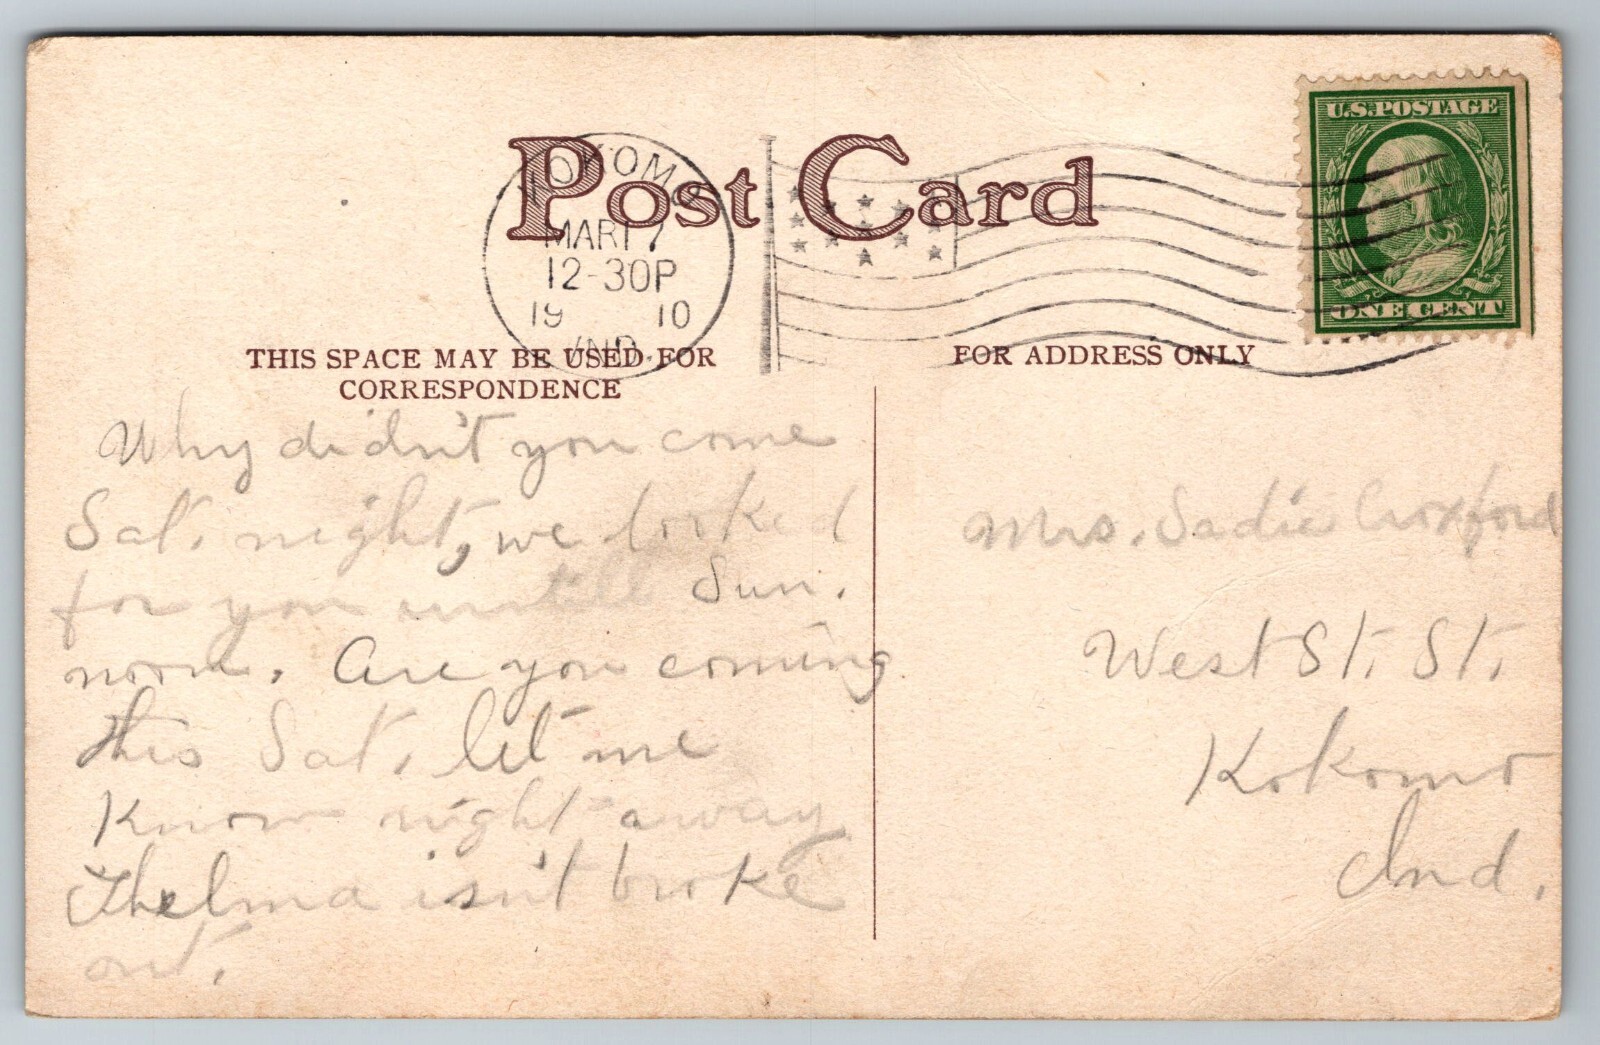 Post Card
KOKOMO
MAR 17
12-30P
19 10
IND.
U.S.POSTAGE
ONE CENT
THIS SPACE MAY BE USED FOR
CORRESPONDENCE
FOR ADDRESS ONLY
Why didn't you come
Sat. night, we looked
for you untill Sun.
noon. Are you coming
this Sat. let me
Know right away
Thelma isn't broke
out.
Mrs. Sadie Croxford
West St. St.
Kokomo
Ind.